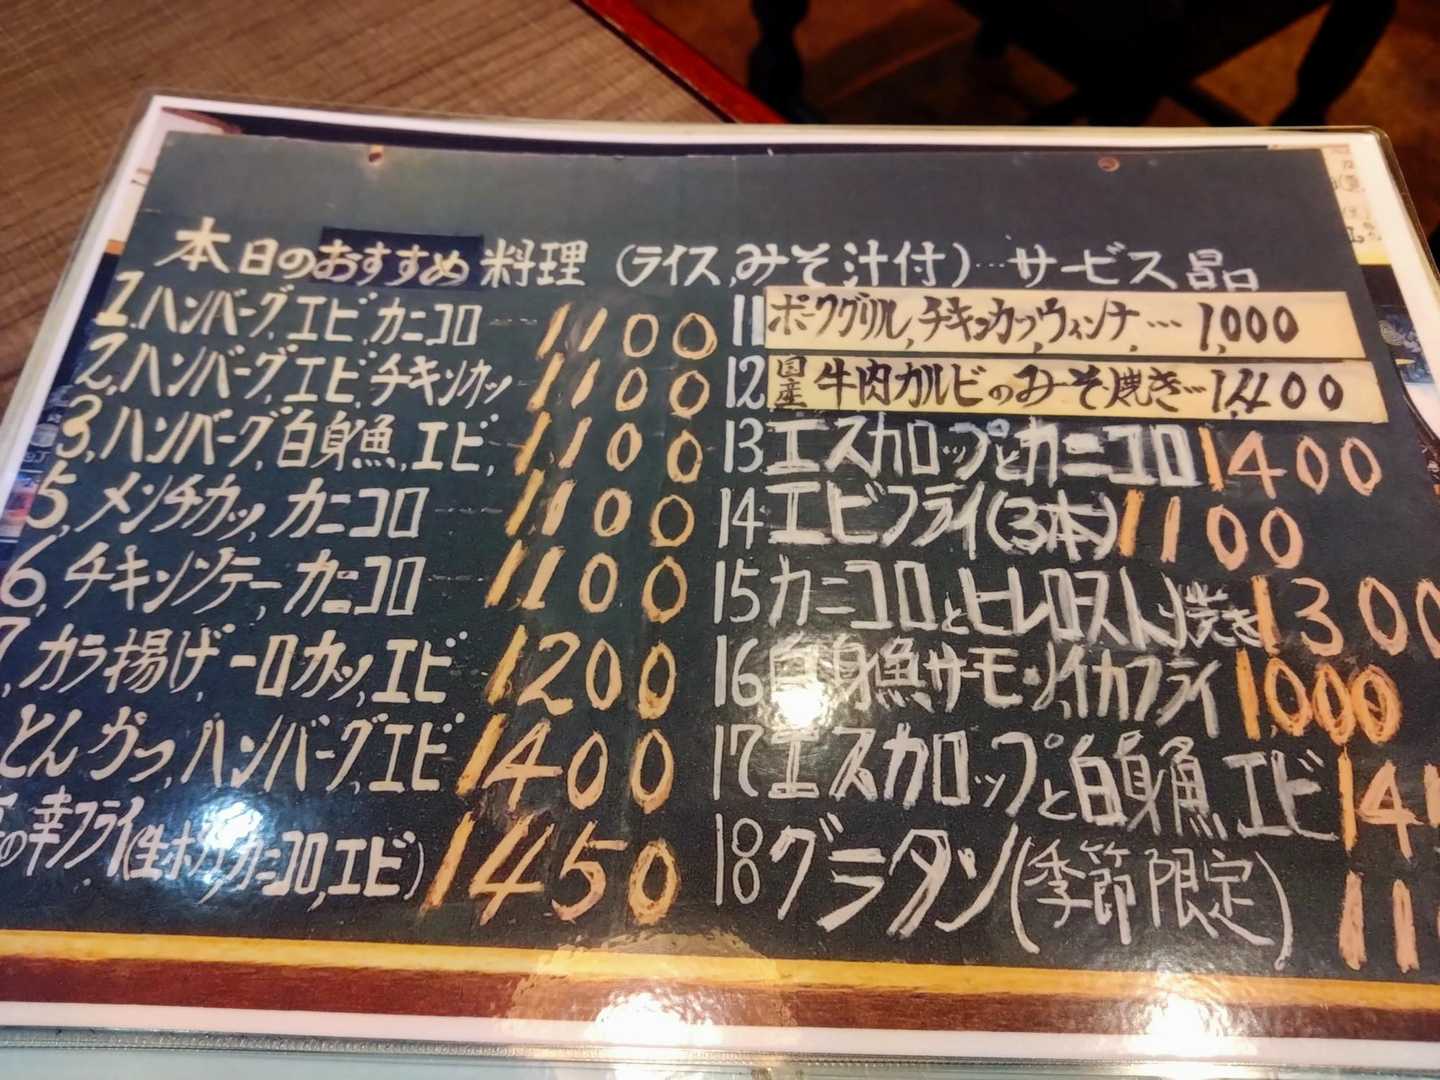 本日のおすすめ料理(ライス,みそ汁付)…サービス品
1.ハンバーグ,エビ,カニコロ 1100
2,ハンバーグ,エビ,チキンカツ 1100
3,ハンバーグ,白身魚,エビ, 1100
5,メンチカツ,カニコロ 1100
6,チキンソテー,カニコロ 1100
7,カラ揚げ,一口カツ,エビ 1200
とんかつ,ハンバーグ,エビ 1400
の幸フライ(生ホタテ,カニコロ,エビ) 1450
11 ポークグリル,チキンカツ,ウィンナ… 1,000
12 国産牛肉カルビのみそ焼き… 1,400
13 エスカロップとカニコロ 1400
14 エビフライ(3本) 1100
15 カニコロとヒレロース入り焼き 1300
16 白身魚サーモン,イカフライ 1000
17 エスカロップと白身魚 エビ 14
18 グラタン(季節限定) 11